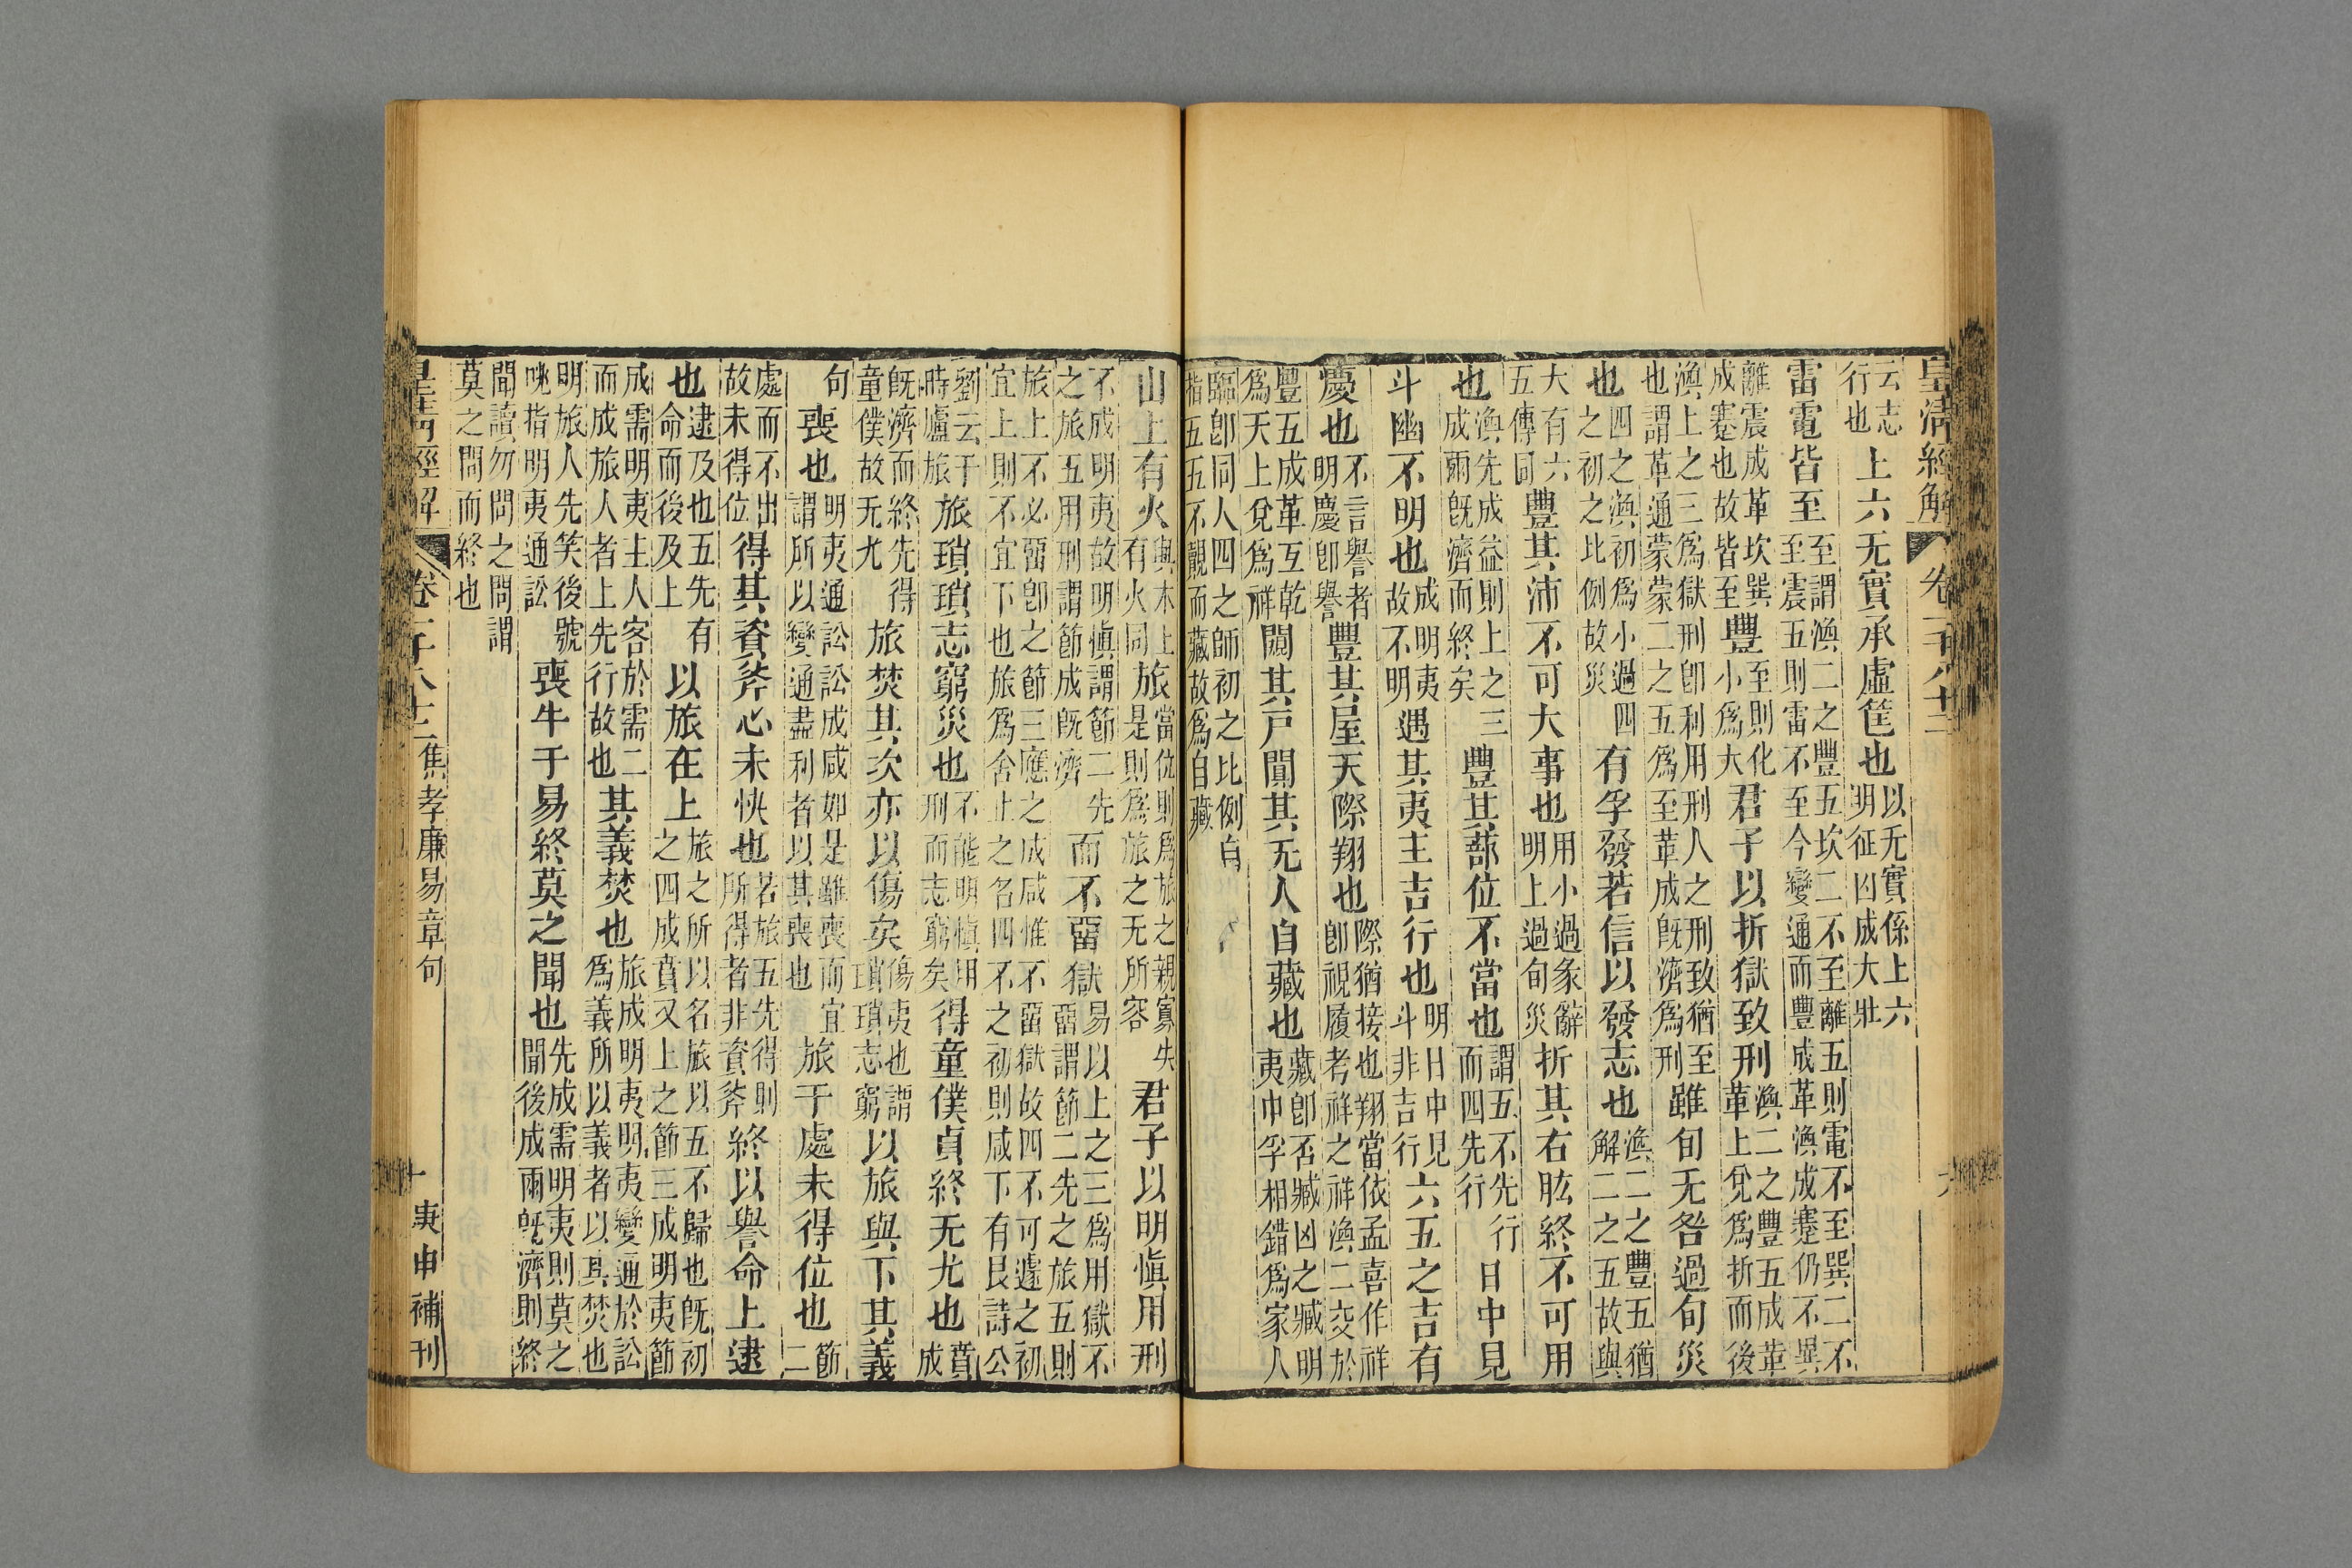 皇清經解　卷一千八十二　六
云志行也　上六无實承虛筐也以无實係上六明征凶成大壯
雷電皆至至謂渙二之豐五坎二不至離五則電不至巽二不至震五則雷不至今變通而豐成革渙成蹇仍不異
離震成革坎巽成蹇也故皆至豐至則化小爲大君子以折獄致刑渙二之豐五成革革上兌爲折而後
渙上之三爲獄刑卽利用刑人之刑致猶至也謂革通蒙蒙二之五爲至革成旣濟爲刑雖旬无咎過旬災
也四之渙初爲小過四之初之比例故災有孚發若信以發志也渙二之豐五猶解二之五故與
大有六五傳同豐其沛不可大事也用小過彖辭明上過旬災折其右肱終不可用
也渙先成益則上之三成兩旣濟而終矣豐其蔀位不當也謂五不先行而四先行日中見
斗幽不明也成明夷故不明遇其夷主吉行也明日中見斗非吉行六五之吉有
慶也不言譽者明慶卽譽豐其屋天際翔也際猶接也翔當依孟喜作祥卽視履考祥之祥渙二交於
豐五成革互乾爲天上兌爲祥闚其戶闃其无人自藏也藏卽否臧凶之臧明夷中孚相錯爲家人
臨卽同人四之師初之比例自指五五不覿而藏故爲自藏
山上有火與木上有火同旅當位則爲旅之親寡失是則爲旅之无所容君子以明愼用刑
不成明夷故明愼謂節二先之旅五用刑謂節成旣濟而不畱獄易以上之三爲用獄不畱謂節二先之旅五則
旅上不必畱卽之節三應之成咸惟不畱獄故四不可遽之初宜上則不宜下也旅爲舍止之名四不之初則咸下有艮詩公
劉云于時廬旅旅瑣瑣志窮災也不能明愼用刑而志窮矣得童僕貞終无尤也賁成
旣濟而終先得童僕故无尤旅焚其次亦以傷矣傷夷也謂瑣瑣志窮以旅與下其義
句喪也明夷通訟訟成咸如是雖喪而宜謂所以變通盡利者以其喪也旅于處未得位也節二
處而不出故未得位得其資斧心未快也若旅五先得則所得者非資斧終以譽命上逮
也逮及也五先有命而後及上以旅在上旅之所以名旅以五不歸也旣初之四成賁又上之節三成明夷節
成需明夷主人客於需二而成旅人者上先行故也其義焚也旅成明夷明夷變通於訟爲義所以義者以其焚也
明旅人先笑後號咷指明夷通訟喪牛于易終莫之聞也先成需明夷則莫之聞後成兩旣濟則終
聞讀勿問之問謂莫之問而終也
皇清經解　卷一千八十二　焦孝廉易章句　庚申補刊